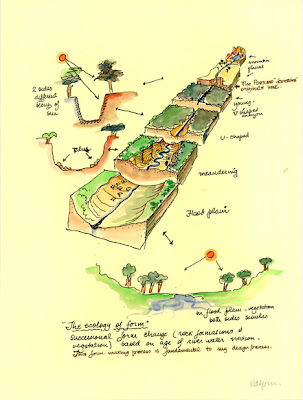 mountain
glacial
2 sides
different
becuz of
sun
The
original
young -
V shaped
canyon
U-Shaped
meandering
Flood plain
in flood plain - vegetation
both sides similar
"The ecology of form"
Successional form change (rock formations &
vegetation) based on age of river water erosion.
This form making process is fundamental to my design process.